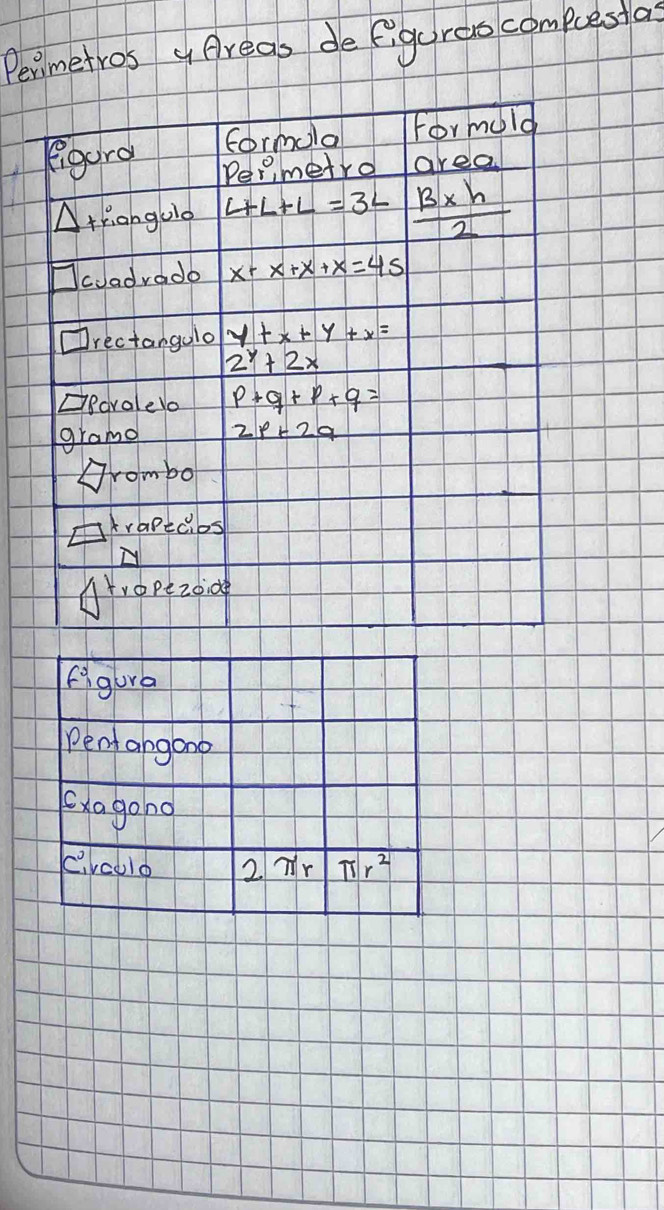 Perimetros y Areas de figuras compuestas
figura formula Perimetro formula area
triangulo L+L+L=3L B×h/2
cuadrado x+x+x+x=4s
rectangulo y+x+y+x=
2y+2x
Paralelo P+q+P+q=
gramo 2P+2q
rombo
trapecios
trapezoide
figura
Pentangono
Exagono
Circulo 2πr πr²